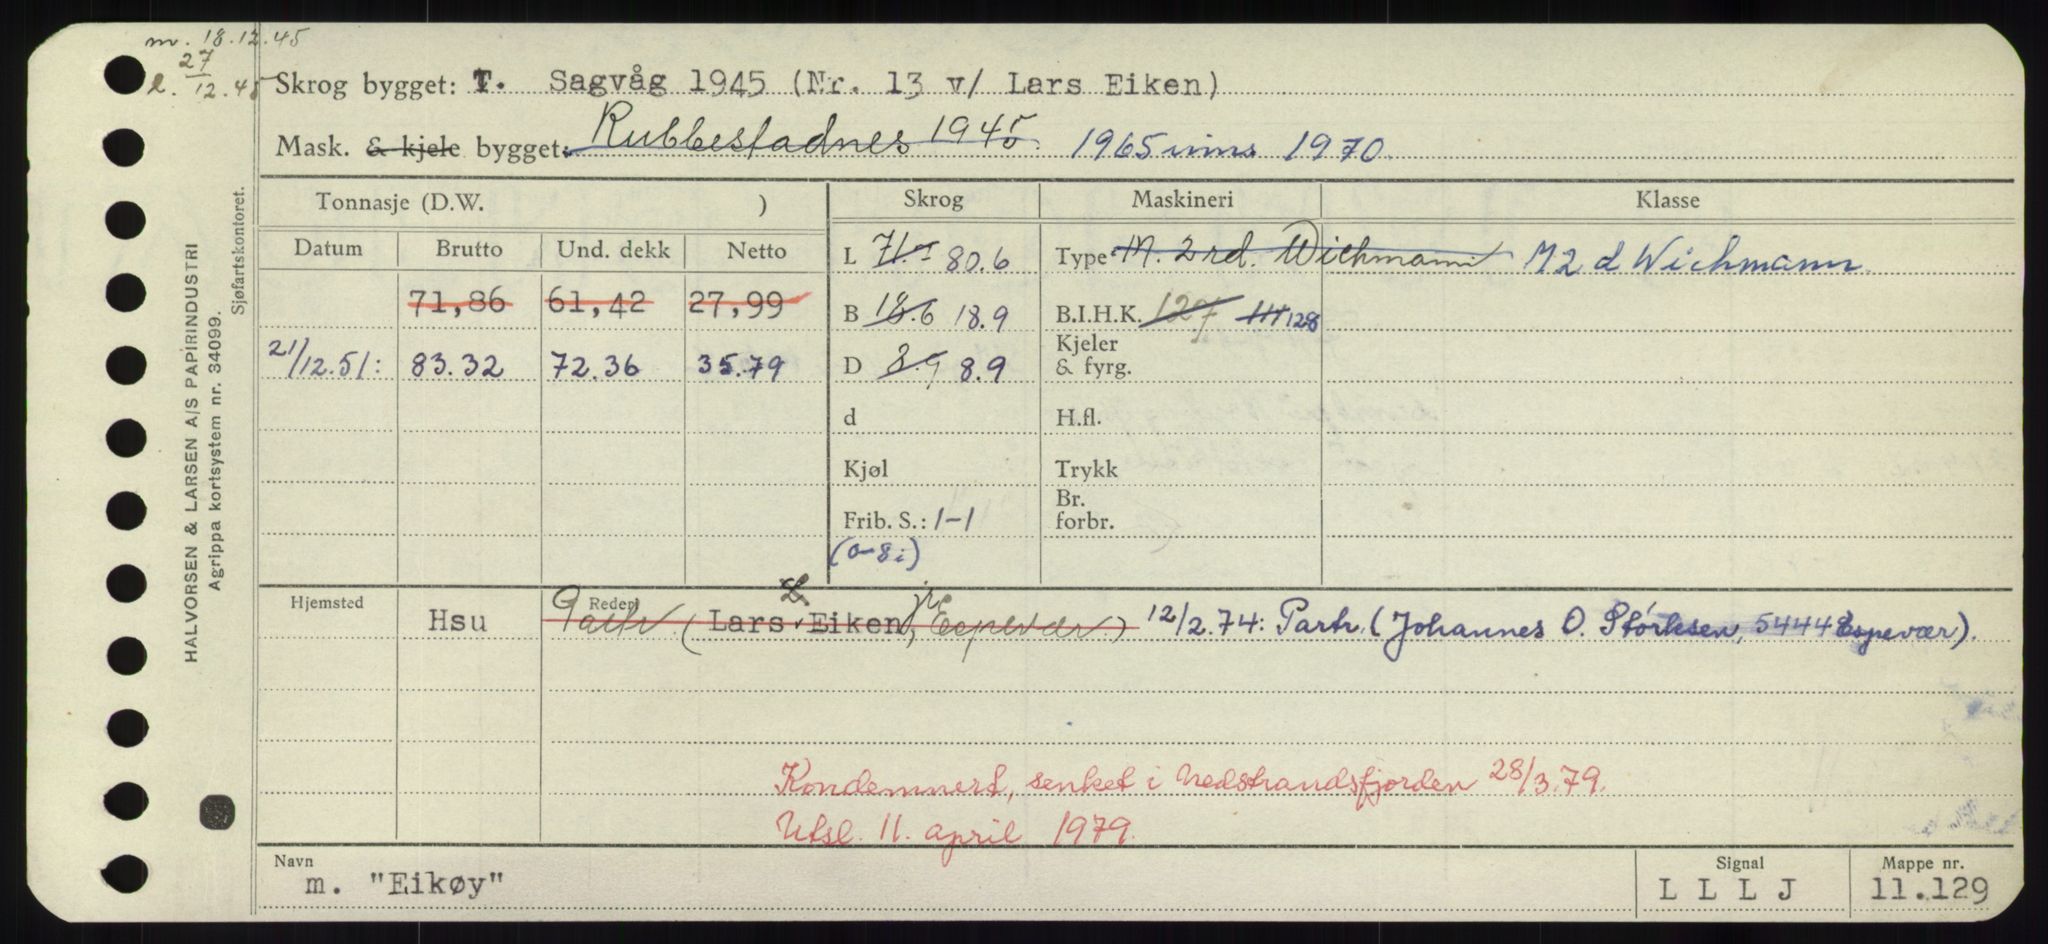 m. 18.12.45
27
l. 12.45
Skrog bygget: T. Sagvåg 1945 (Nr. 13 v/ Lars Eiken)
Mask. & kjele bygget: Rubbestadnes 1945. 1965 inns 1970.
Tonnasje (D.W. ) Skrog Maskineri Klasse
Datum Brutto Und. dekk Netto L 71.1 80.6 Type M. 2 rd. Wichmann M 2 d Wichmann
71,86 61,42 27,99 B 18.6 18.9 B.I.H.K. 127 111 128
21/12.51: 83.32 72.36 35.79 D 8.9 8.9 Kjeler & fyrg.
d H.fl.
Kjøl Trykk
Frib. S.: 1-1 Br. forbr.
(0-8i)
Hjemsted Rederi
Hsu Partr (Lars L Eiken jr, Espevær) 12/2.74: Partr. (Johannes O. Størksen, 5444 Espevær).
Kondemnert, senket i Nedstrandsfjorden 28/3.79.
Utsl. 11. april 1979.
Navn Signal Mappe nr.
m. "Eikøy" L L L J 11.129
HALVORSEN & LARSEN A/S PAPIRINDUSTRI
Agrippa kortsystem nr. 34099.
Sjøfartskontoret.